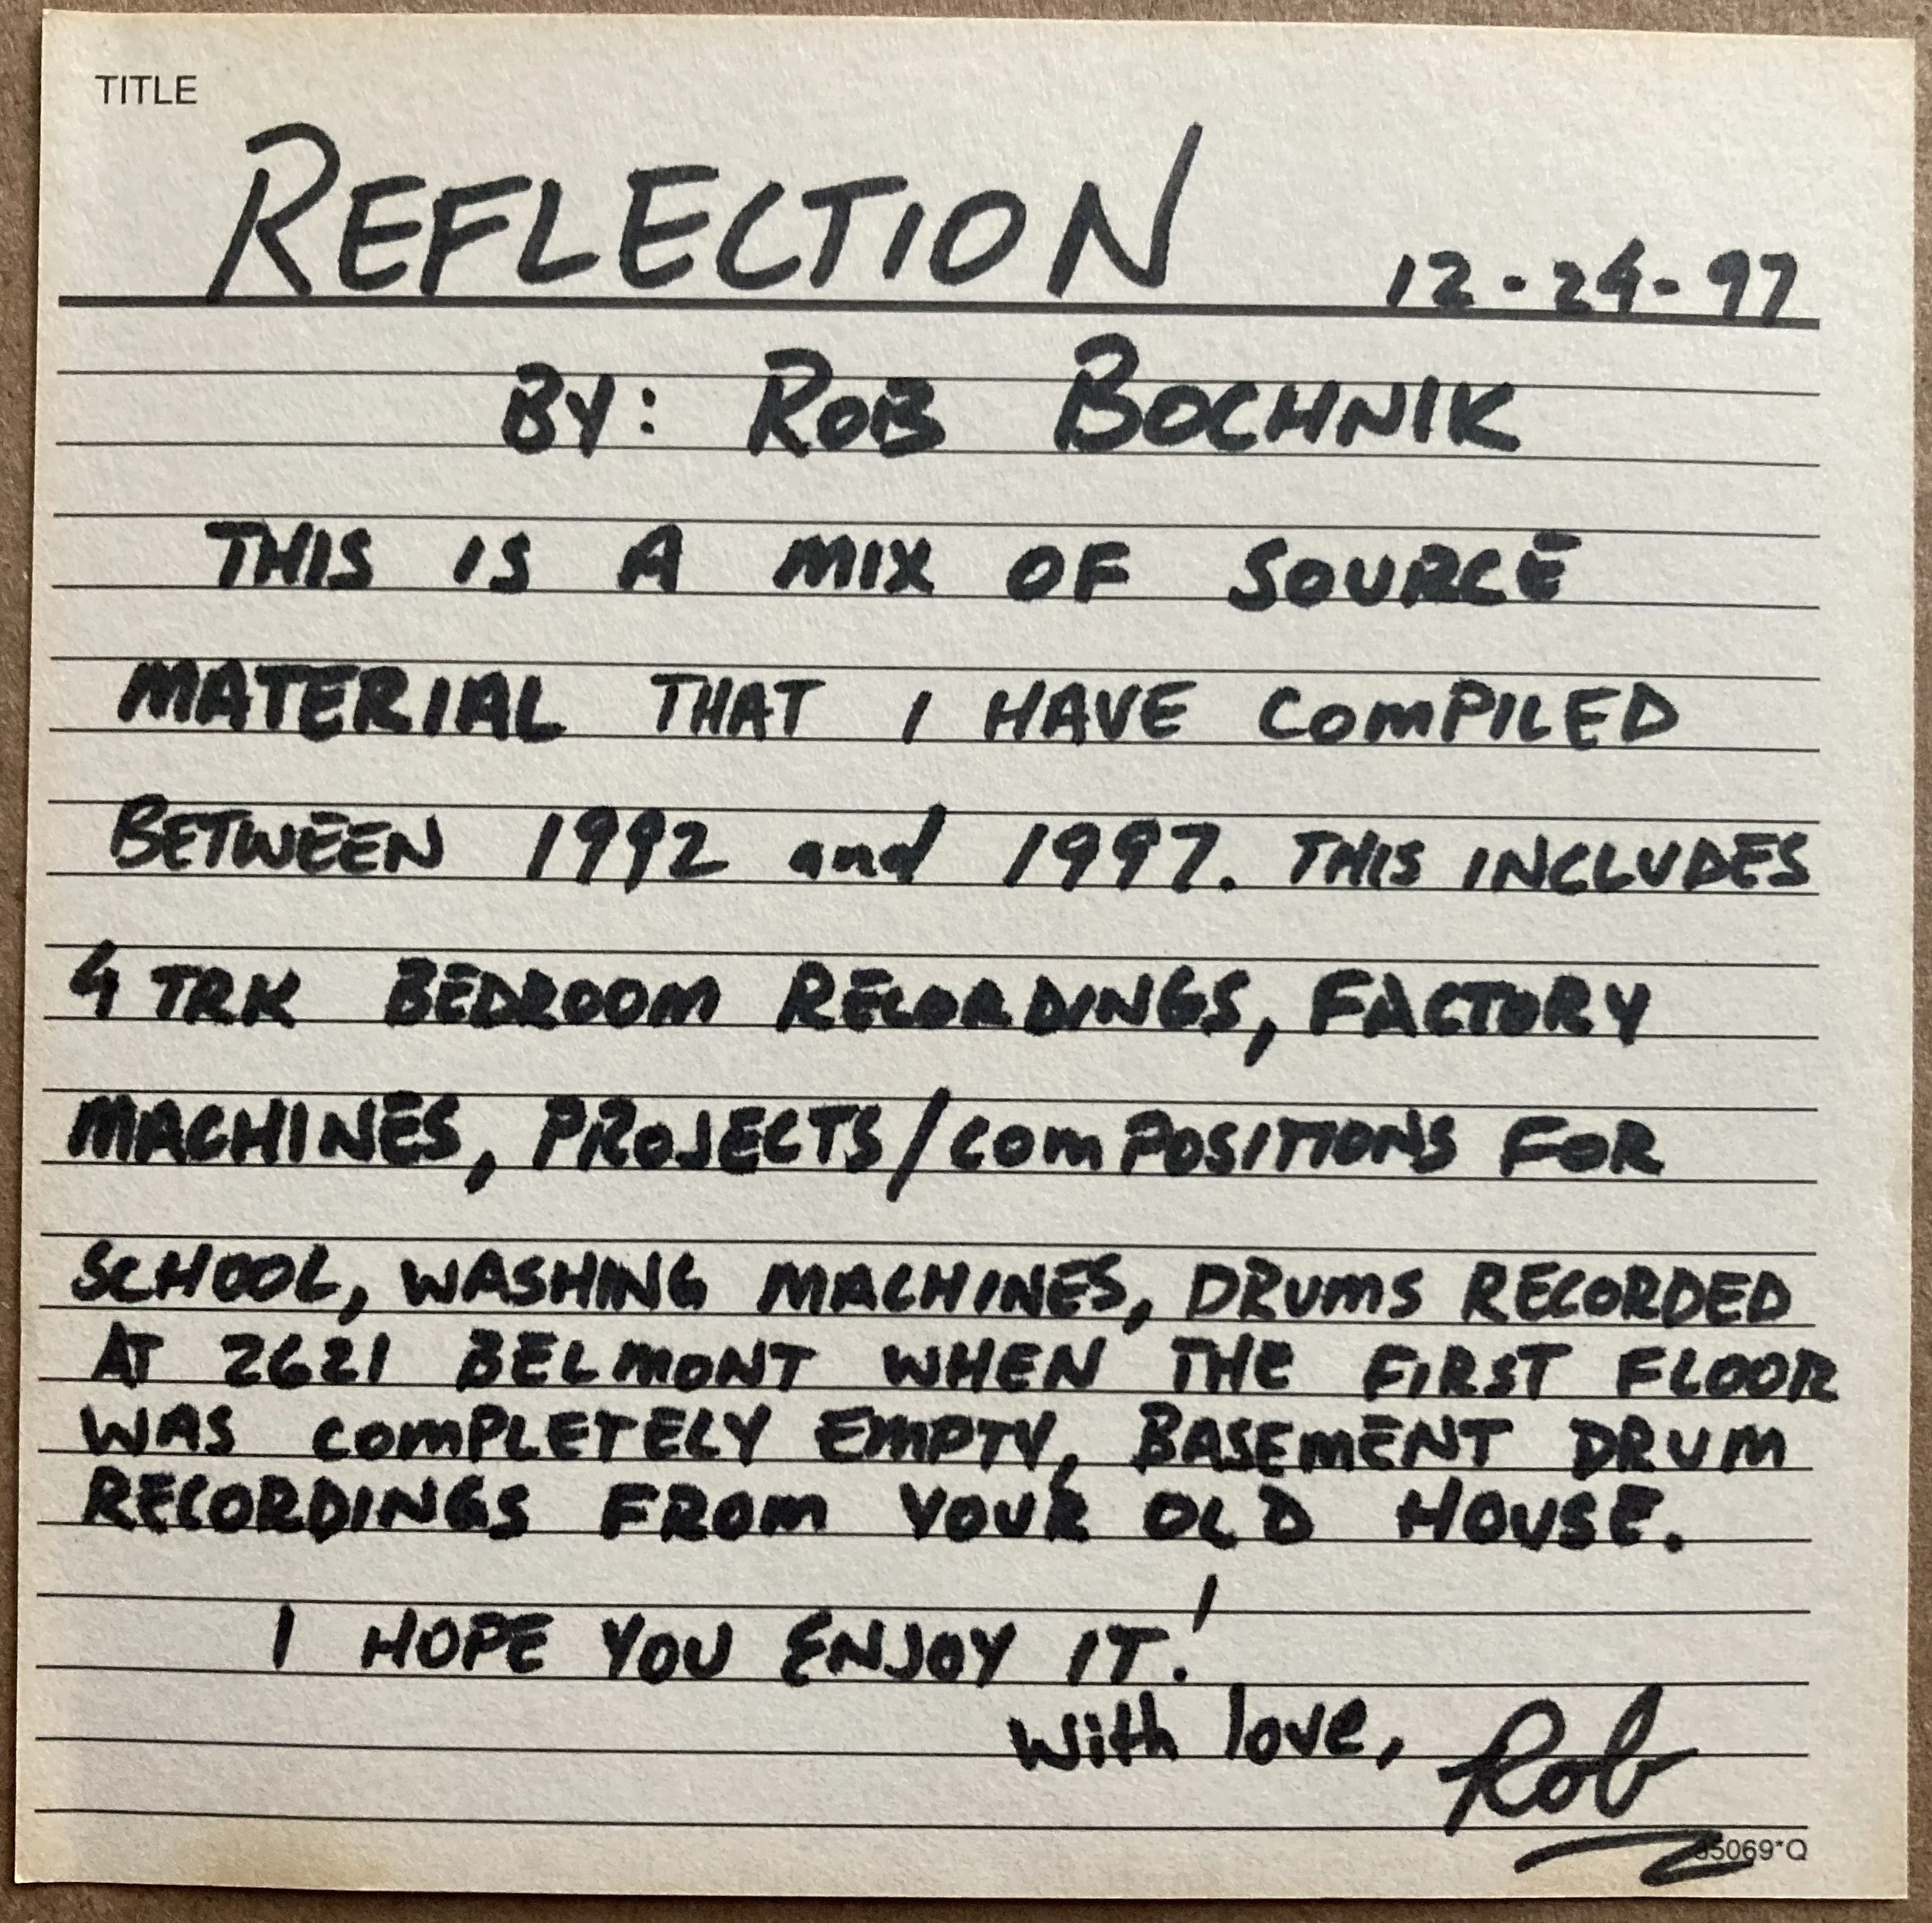 TITLE
REFLECTION 12-24-97
BY: ROB BOCHNIK
THIS IS A MIX OF SOURCE
MATERIAL THAT I HAVE COMPILED
BETWEEN 1992 and 1997. THIS INCLUDES
4 TRK BEDROOM RECORDINGS, FACTORY
MACHINES, PROJECTS/COMPOSITIONS FOR
SCHOOL, WASHING MACHINES, DRUMS RECORDED
AT 2621 BELMONT WHEN THE FIRST FLOOR
WAS COMPLETELY EMPTY, BASEMENT DRUM
RECORDINGS FROM YOUR OLD HOUSE.
I HOPE YOU ENJOY IT!
With love, Rob
35069*Q